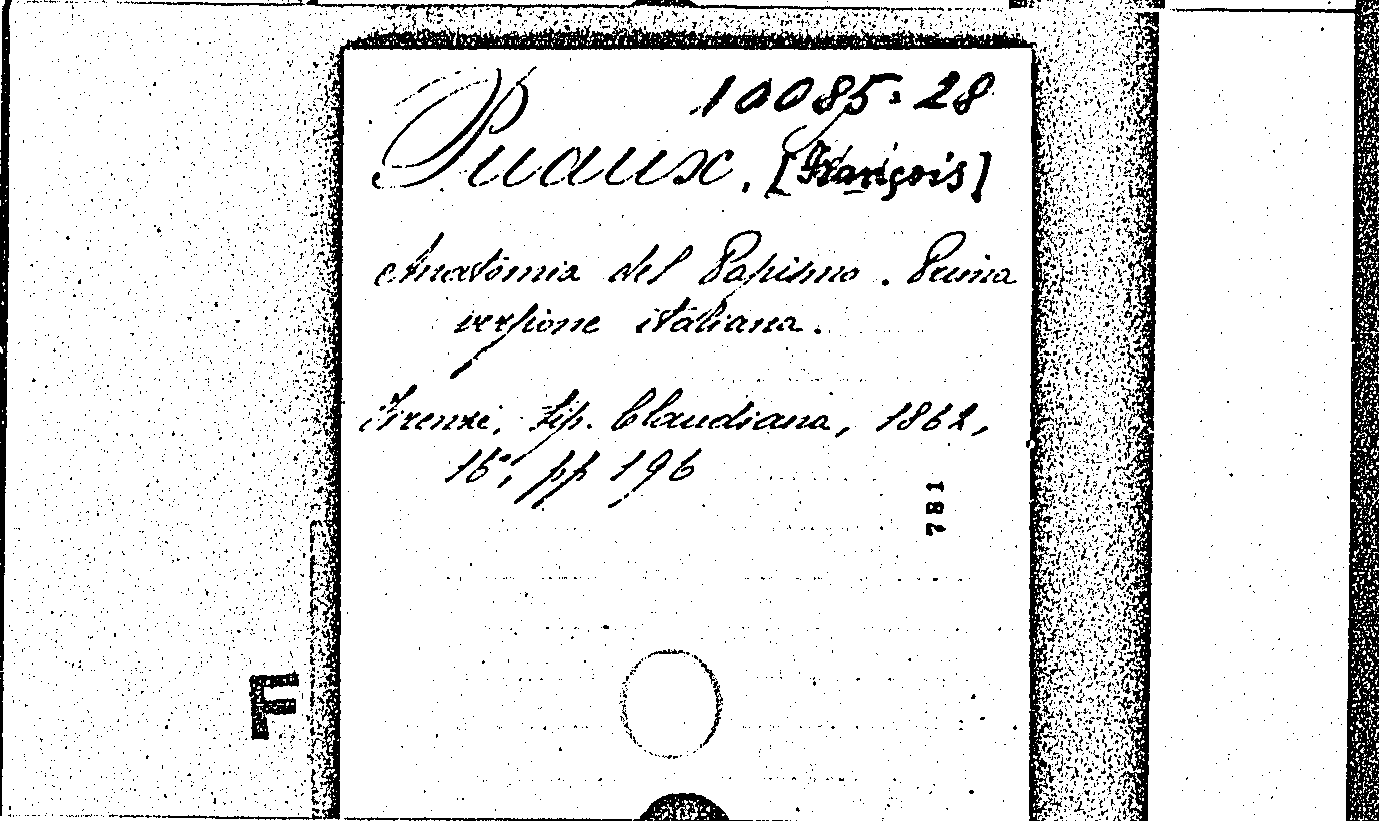 10085.28
Puaux. [François]
Anatomia del Papismo. Prima
versione italiana.
Firenze, Tip. Claudiana, 1862,
16°, pp 196
781
F